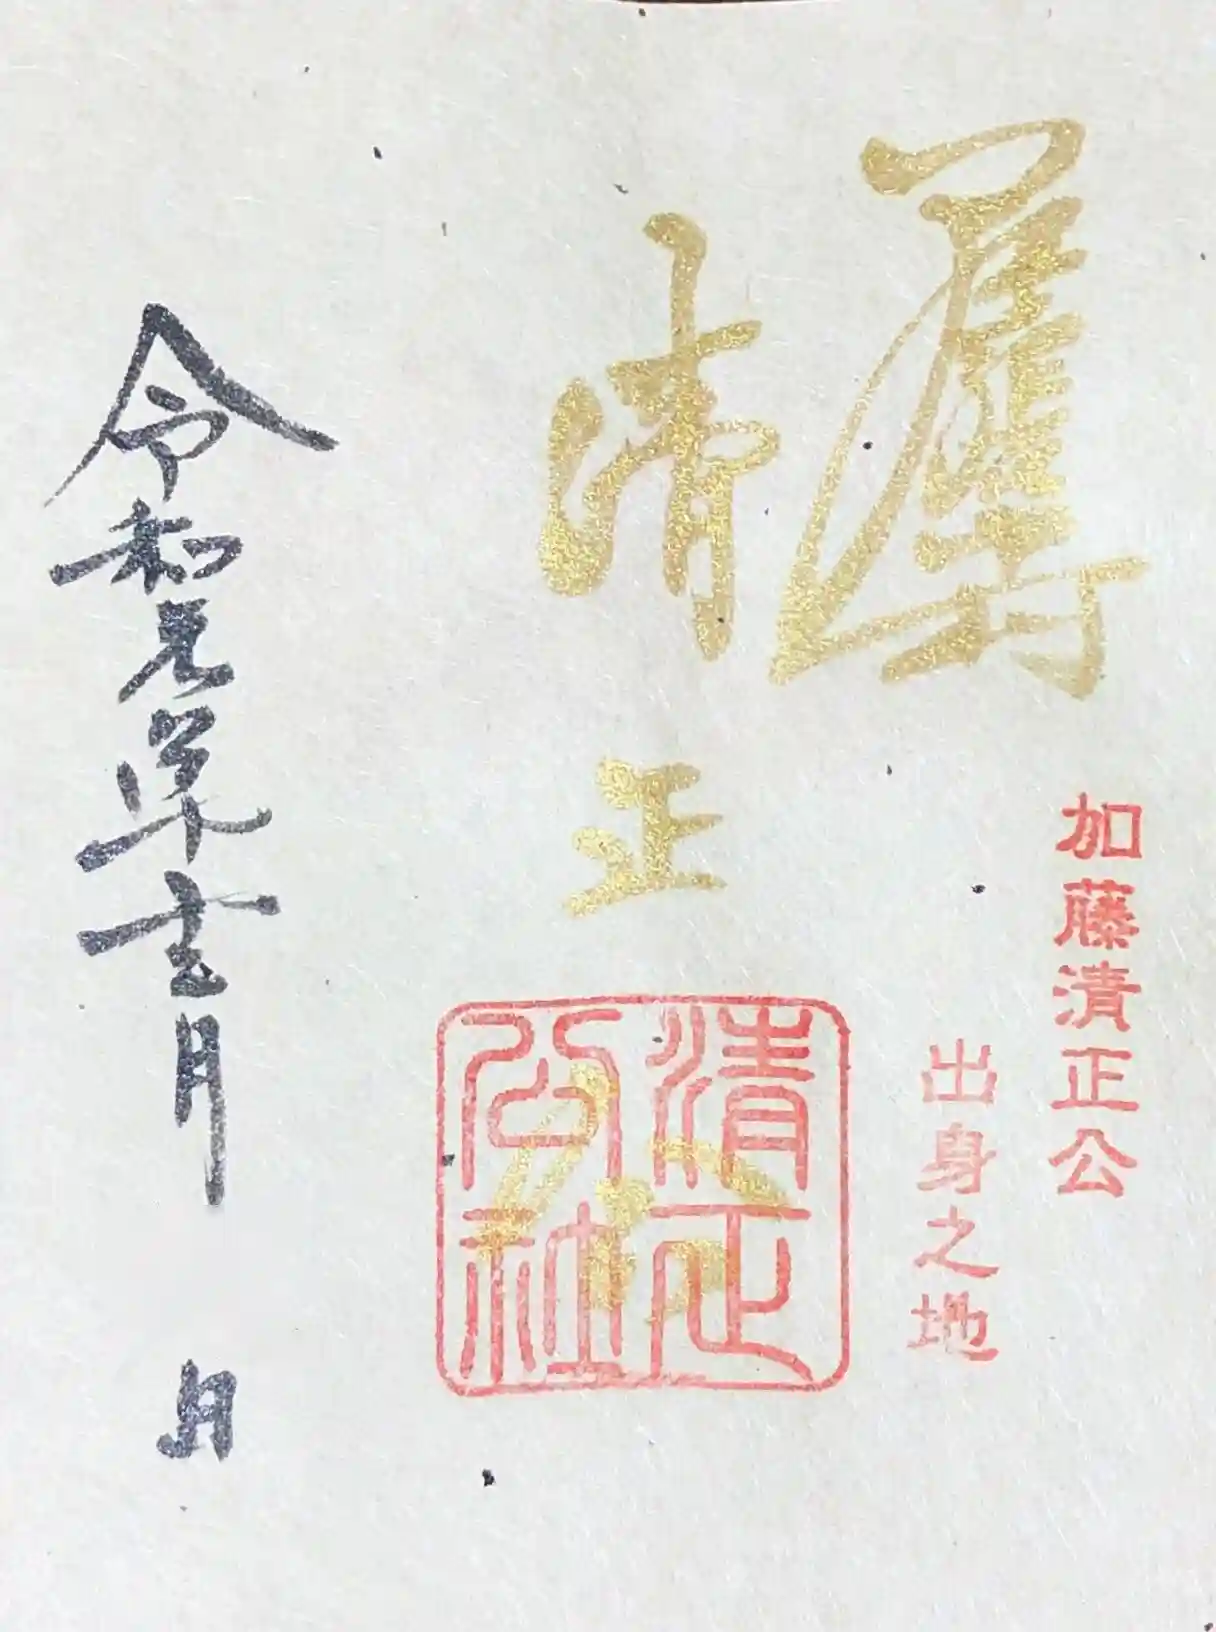 清正公
加藤清正公
出身之地
清正公社
令和元年
月 日